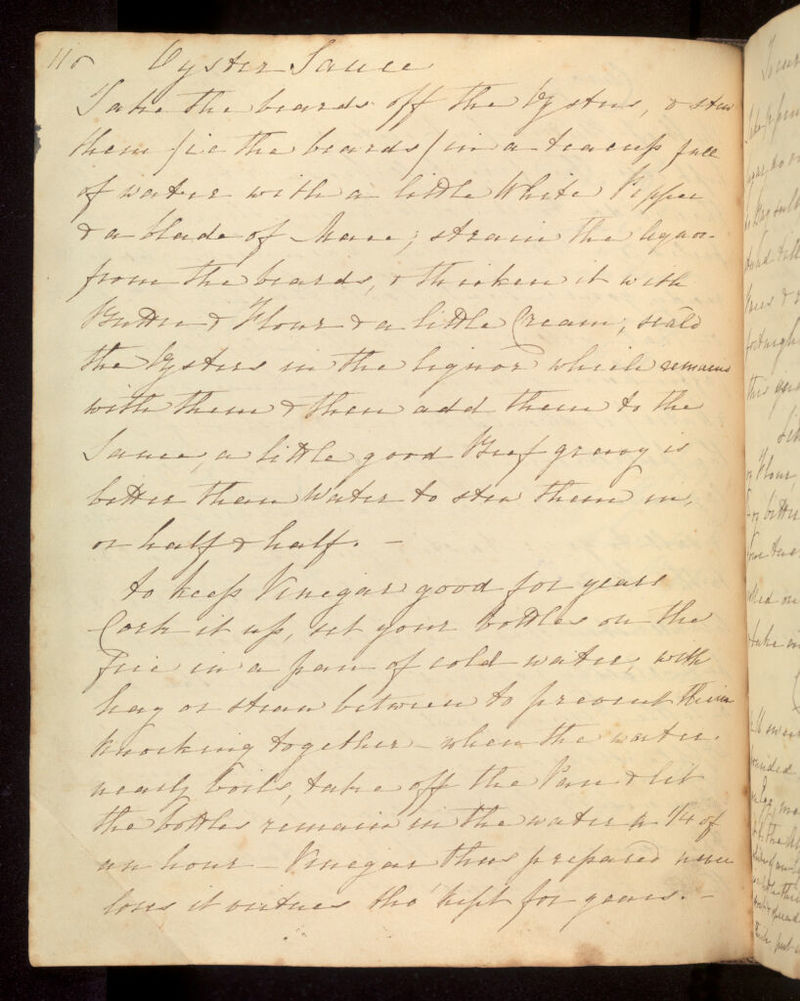 110 Oyster Sauce
Take the beards off the Oysters, & stew
them /ie the beards/ in a teacup full
of water with a little White Pepper
& a blade of Mace; strain the liquor
from the beards, & thicken it with
Butter & Flour & a little Cream; scald
the Oysters in the liquor which remains
with them & then add them to the
Sauce, a little good Beef gravy is
better than Water to stew them in,
or half & half. –
to keep Vinegar good for years
Cork it up, set your bottles on the
Fire in a pan of cold water, with
hay or straw between to prevent their
knocking together – when the water
nearly boils, take off the Pan & let
the bottles remain in the water a 1/4 of
an hour – Vinegar thus prepared never
loses it virtues tho' kept for years. –